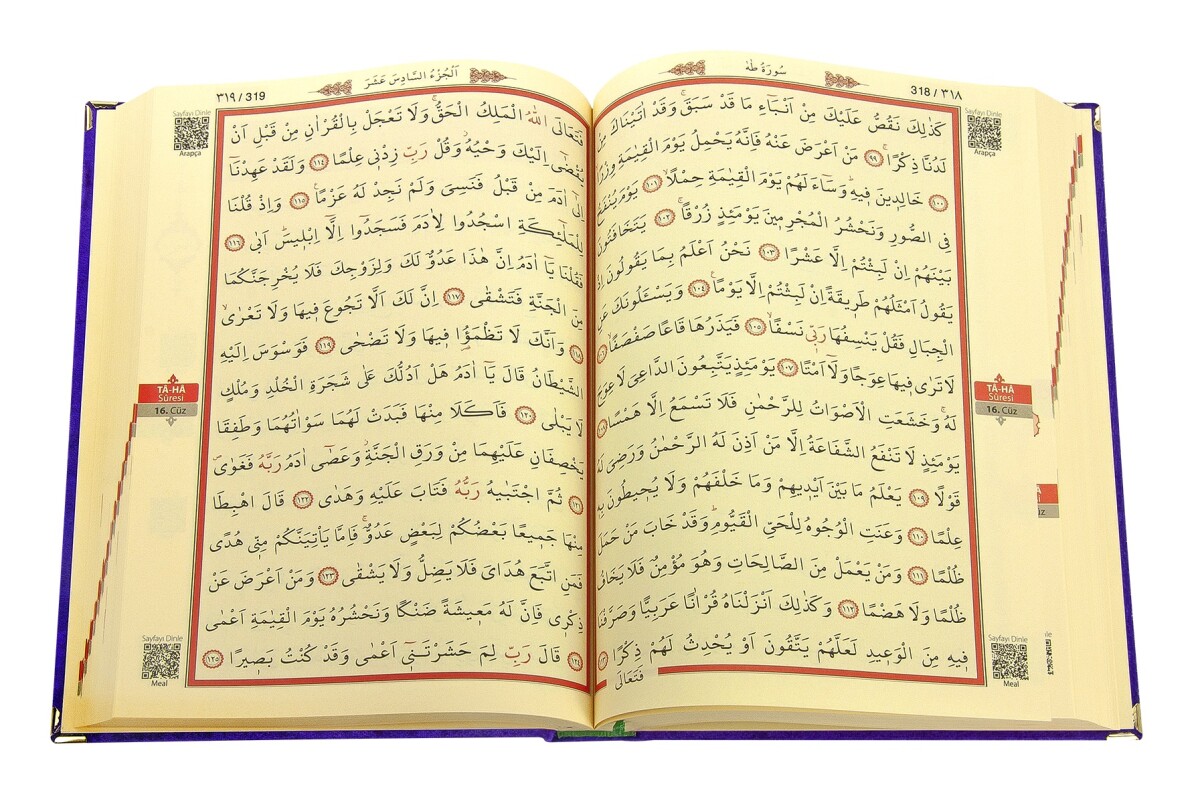 318 / ٣١٨
سُورَةُ طٰهٰ
Sayfayı Dinle
Arapça
كَذٰلِكَ نَقُصُّ عَلَيْكَ مِنْ اَنْبَٓاءِ مَا قَدْ سَبَقَۚ وَقَدْ اٰتَيْنَاكَ مِنْ
لَدُنَّا ذِكْرًاۚ ٩٩ مَنْ اَعْرَضَ عَنْهُ فَاِنَّهُ يَحْمِلُ يَوْمَ الْقِيٰمَةِ وِزْرًا
١٠٠ خَالِد۪ينَ ف۪يهِۜ وَسَٓاءَ لَهُمْ يَوْمَ الْقِيٰمَةِ حِمْلًاۙ ١٠١ يَوْمَ يُنْفَخُ
فِي الصُّورِ وَنَحْشُرُ الْمُجْرِم۪ينَ يَوْمَئِذٍ زُرْقًاۚ ١٠٢ يَتَخَافَتُونَ
بَيْنَهُمْ اِنْ لَبِثْتُمْ اِلَّا عَشْرًا ١٠٣ نَحْنُ اَعْلَمُ بِمَا يَقُولُونَ اِذْ
يَقُولُ اَمْثَلُهُمْ طَر۪يقَةً اِنْ لَبِثْتُمْ اِلَّا يَوْمًاۚ ١٠٤ وَيَسْـَٔلُونَكَ عَنِ
الْجِبَالِ فَقُلْ يَنْسِفُهَا رَبّ۪ي نَسْفًاۙ ١٠٥ فَيَذَرُهَا قَاعًا صَفْصَفًاۙ ١٠٦
لَا تَرٰى ف۪يهَا عِوَجًا وَلَٓا اَمْتًاۜ ١٠٧ يَوْمَئِذٍ يَتَّبِعُونَ الدَّاعِيَ لَا عِوَجَ
لَهُۚ وَخَشَعَتِ الْاَصْوَاتُ لِلرَّحْمٰنِ فَلَا تَسْمَعُ اِلَّا هَمْسًا ١٠٨
يَوْمَئِذٍ لَا تَنْفَعُ الشَّفَاعَةُ اِلَّا مَنْ اَذِنَ لَهُ الرَّحْمٰنُ وَرَضِيَ لَهُ
قَوْلًا ١٠٩ يَعْلَمُ مَا بَيْنَ اَيْد۪يهِمْ وَمَا خَلْفَهُمْ وَلَا يُح۪يطُونَ بِه۪
عِلْمًا ١١٠ وَعَنَتِ الْوُجُوهُ لِلْحَيِّ الْقَيُّومِۜ وَقَدْ خَابَ مَنْ حَمَلَ
ظُلْمًا ١١١ وَمَنْ يَعْمَلْ مِنَ الصَّالِحَاتِ وَهُوَ مُؤْمِنٌ فَلَا يَخَافُ
ظُلْمًا وَلَا هَضْمًا ١١٢ وَكَذٰلِكَ اَنْزَلْنَاهُ قُرْاٰنًا عَرَبِيًّا وَصَرَّفْنَا
ف۪يهِ مِنَ الْوَع۪يدِ لَعَلَّهُمْ يَتَّقُونَ اَوْ يُحْدِثُ لَهُمْ ذِكْرًا ١١٣
فَتَعَالَى
TÂ-HÂ
Sûresi
16. Cüz
Sayfayı Dinle
Meal
٣١٩ / 319
اَلْجُزْءُ السَّادِسَ عَشَرَ
Sayfayı Dinle
Arapça
فَتَعَالَى اللّٰهُ الْمَلِكُ الْحَقُّۚ وَلَا تَعْجَلْ بِالْقُرْاٰنِ مِنْ قَبْلِ اَنْ
يُقْضٰٓى اِلَيْكَ وَحْيُهُۘ وَقُلْ رَبِّ زِدْن۪ي عِلْمًا ١١٤ وَلَقَدْ عَهِدْنَٓا
اِلٰٓى اٰدَمَ مِنْ قَبْلُ فَنَسِيَ وَلَمْ نَجِدْ لَهُ عَزْمًا۟ ١١٥ وَاِذْ قُلْنَا
لِلْمَلٰٓئِكَةِ اسْجُدُوا لِاٰدَمَ فَسَجَدُٓوا اِلَّٓا اِبْل۪يسَۜ اَبٰى ١١٦
فَقُلْنَا يَٓا اٰدَمُ اِنَّ هٰذَا عَدُوٌّ لَكَ وَلِزَوْجِكَ فَلَا يُخْرِجَنَّكُمَا
مِنَ الْجَنَّةِ فَتَشْقٰى ١١٧ اِنَّ لَكَ اَلَّا تَجُوعَ ف۪يهَا وَلَا تَعْرٰىۙ
١١٨ وَاَنَّكَ لَا تَظْمَؤُ۬ا ف۪يهَا وَلَا تَضْحٰى ١١٩ فَوَسْوَسَ اِلَيْهِ
الشَّيْطَانُ قَالَ يَٓا اٰدَمُ هَلْ اَدُلُّكَ عَلٰى شَجَرَةِ الْخُلْدِ وَمُلْكٍ
لَا يَبْلٰى ١٢٠ فَاَكَلَا مِنْهَا فَبَدَتْ لَهُمَا سَوْاٰتُهُمَا وَطَفِقَا
يَخْصِفَانِ عَلَيْهِمَا مِنْ وَرَقِ الْجَنَّةِۘ وَعَصٰٓى اٰدَمُ رَبَّهُ فَغَوٰىۖ
١٢١ ثُمَّ اجْتَبٰيهُ رَبُّهُ فَتَابَ عَلَيْهِ وَهَدٰى ١٢٢ قَالَ اهْبِطَا
مِنْهَا جَم۪يعًا بَعْضُكُمْ لِبَعْضٍ عَدُوٌّۚ فَاِمَّا يَأْتِيَنَّكُمْ مِنّ۪ي هُدًى
فَمَنِ اتَّبَعَ هُدَايَ فَلَا يَضِلُّ وَلَا يَشْقٰى ١٢٣ وَمَنْ اَعْرَضَ عَنْ
ذِكْر۪ي فَاِنَّ لَهُ مَع۪يشَةً ضَنْكًا وَنَحْشُرُهُ يَوْمَ الْقِيٰمَةِ اَعْمٰى
١٢٤ قَالَ رَبِّ لِمَ حَشَرْتَن۪ٓي اَعْمٰى وَقَدْ كُنْتُ بَص۪يرًا ١٢٥
TÂ-HÂ
Sûresi
16. Cüz
Sayfayı Dinle
Meal